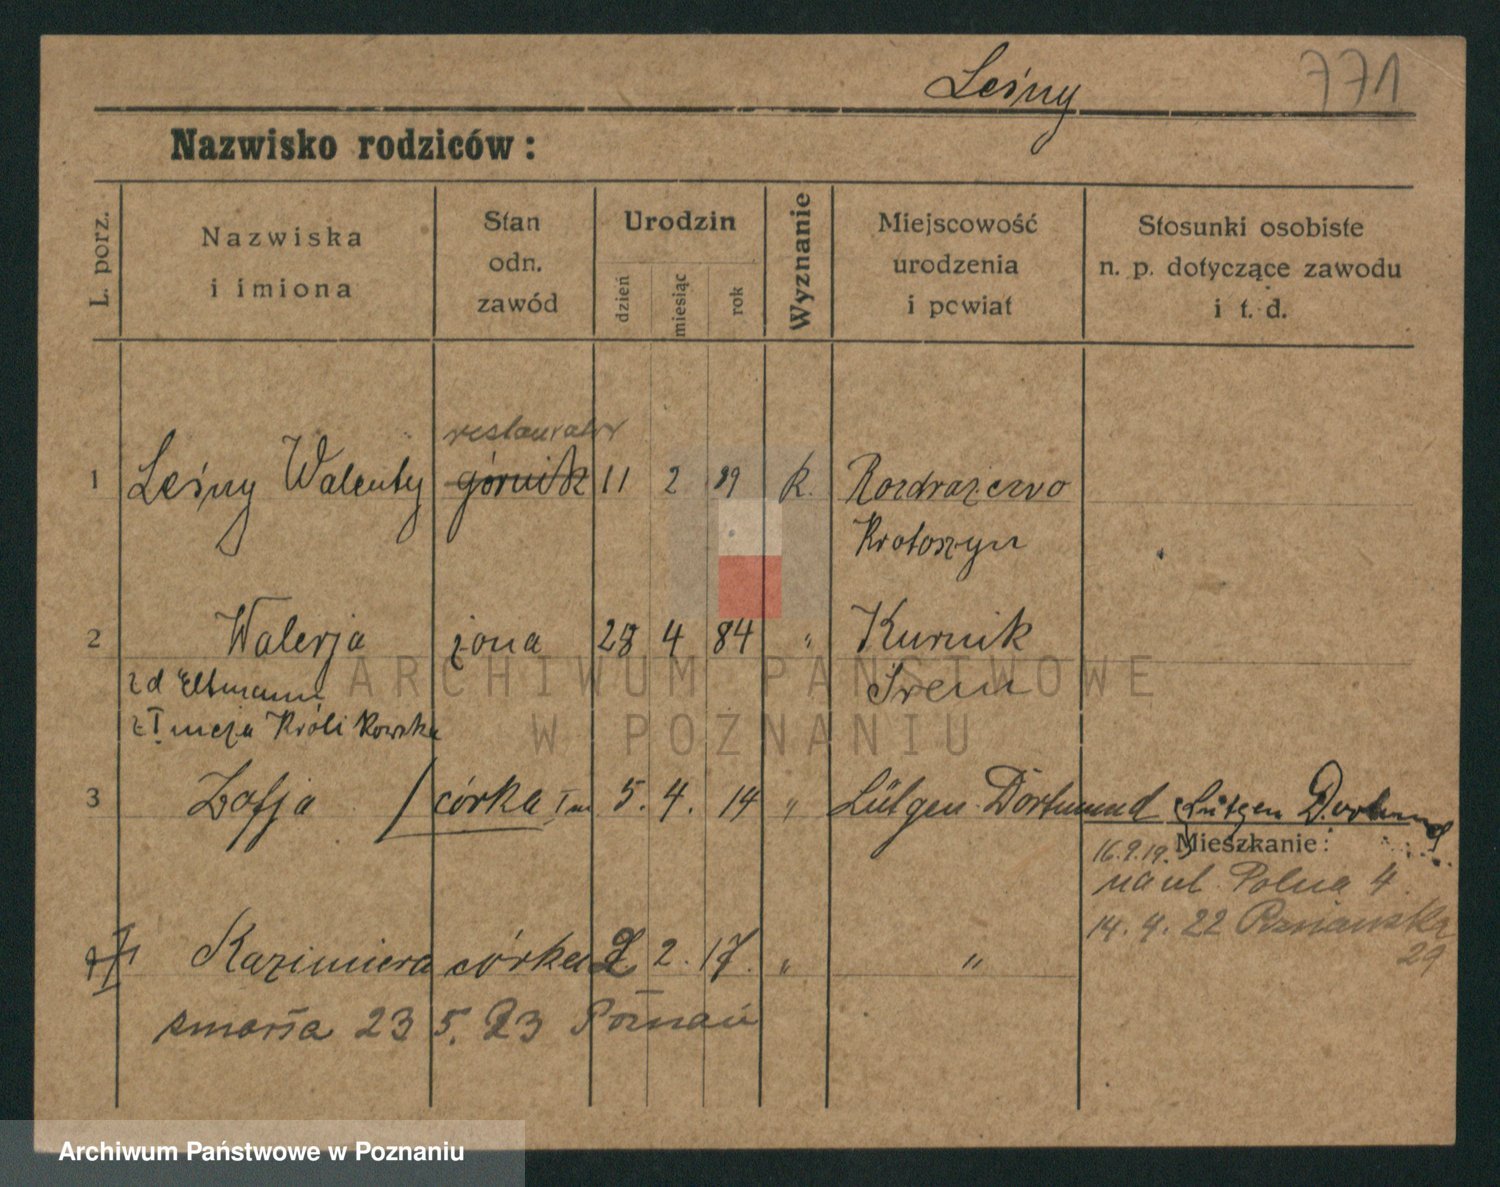 Leśny 771
Nazwisko rodziców:
L. porz.
Nazwiska
i imiona
Stan
odn.
zawód
Urodzin
dzień
miesiąc
rok
Wyznanie
Miejscowość
urodzenia
i powiat
Stosunki osobiste
n. p. dotyczące zawodu
i t. d.
restaurator
1 Leśny Walenty górnik 11 2 89 K. Rozdrażewo
Krotoszyn
2 Walerja żona 28 4 84 " Kurnik
z d Eltmann Śrem
z I męża Królikowska
3 Zofja córka I m 5. 4. 14 " Lütgen Dortmund Lütgen Dortmund
Mieszkanie:
16.9.19.
na ul Polna 4.
14. 4. 22 Poznańska
29
Kazimiera córka 2 2. 17. " "
zmarła 23 5. 23 Poznań
ARCHIWUM PAŃSTWOWE
W POZNANIU
Archiwum Państwowe w Poznaniu